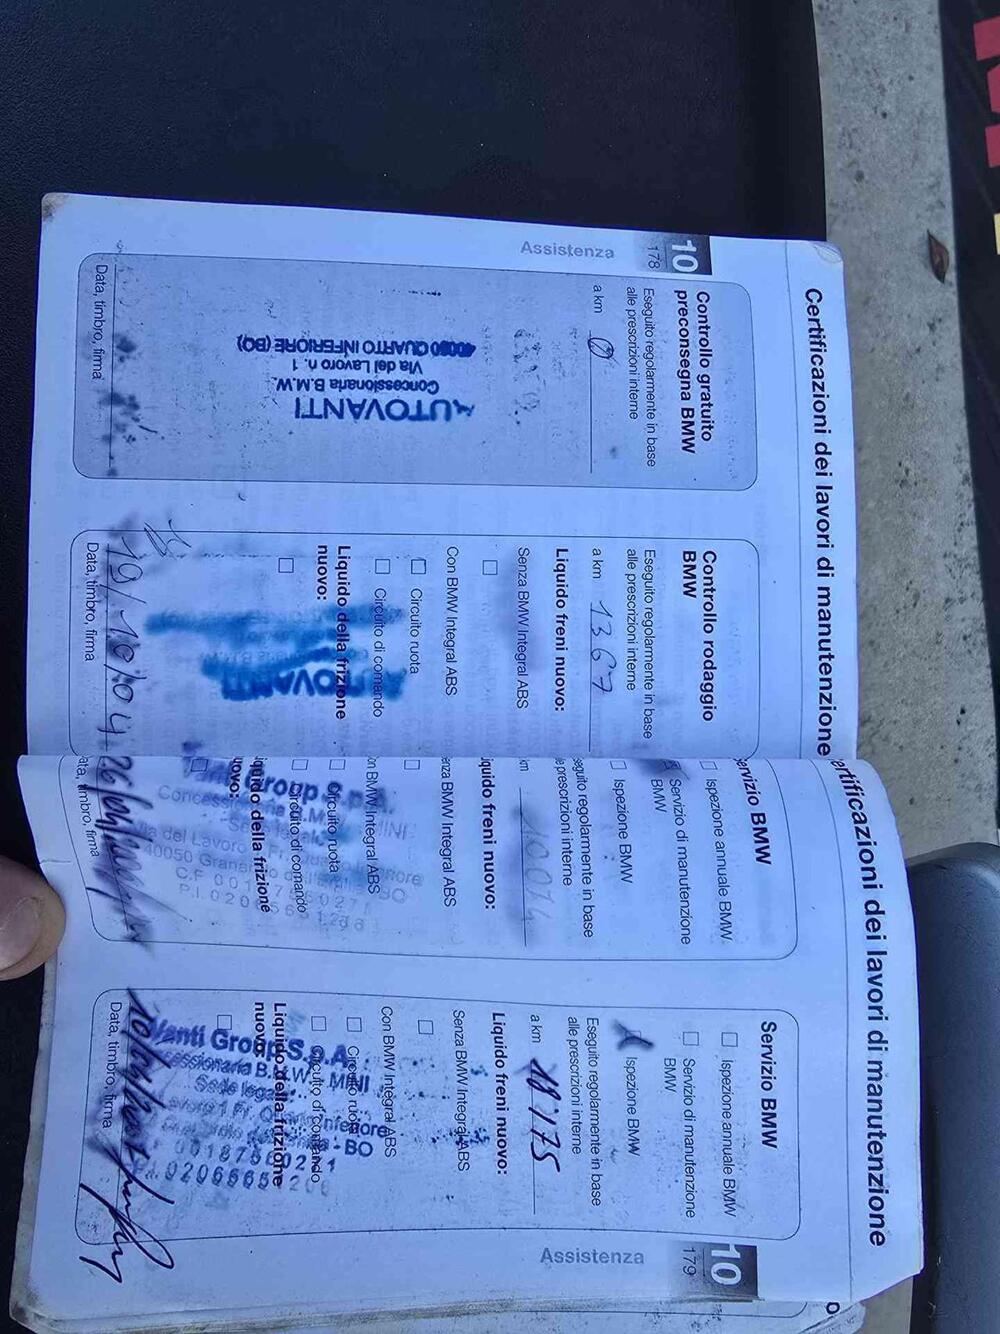 Certificazioni dei lavori di manutenzione
10
178
Assistenza
Controllo gratuito
preconsegna BMW
Eseguito regolarmente in base
alle prescrizioni interne
a km 0
AUTOVANTI
Concessionaria B.M.W.
Via del Lavoro n. 1
40050 QUARTO INFERIORE (BO)
Data, timbro, firma
Controllo rodaggio
BMW
Eseguito regolarmente in base
alle prescrizioni interne
a km 1367
Liquido freni nuovo:
Senza BMW Integral ABS
Con BMW Integral ABS
Circuito ruota
Circuito di comando
Liquido della frizione
nuovo:
19/10/04
Data, timbro, firma
ertificazioni dei lavori di manutenzione
ervizio BMW
Ispezione annuale BMW
Servizio di manutenzione
BMW
Ispezione BMW
seguito regolarmente in base
le prescrizioni interne
km
iquido freni nuovo:
enza BMW Integral ABS
on BMW Integral ABS
Circuito ruota
Circuito di comando
iquido della frizione
uovo:
Group S.p.A.
Via del Lavoro
ata, timbro, firma
Servizio BMW
Ispezione annuale BMW
Servizio di manutenzione
BMW
Ispezione BMW
Eseguito regolarmente in base
alle prescrizioni interne
a km 18175
Liquido freni nuovo:
Senza BMW Integral ABS
Con BMW Integral ABS
Circuito ruota
Circuito di comando
Liquido della frizione
nuovo:
Vanti Group S.p.A.
Data, timbro, firma
10
179
Assistenza